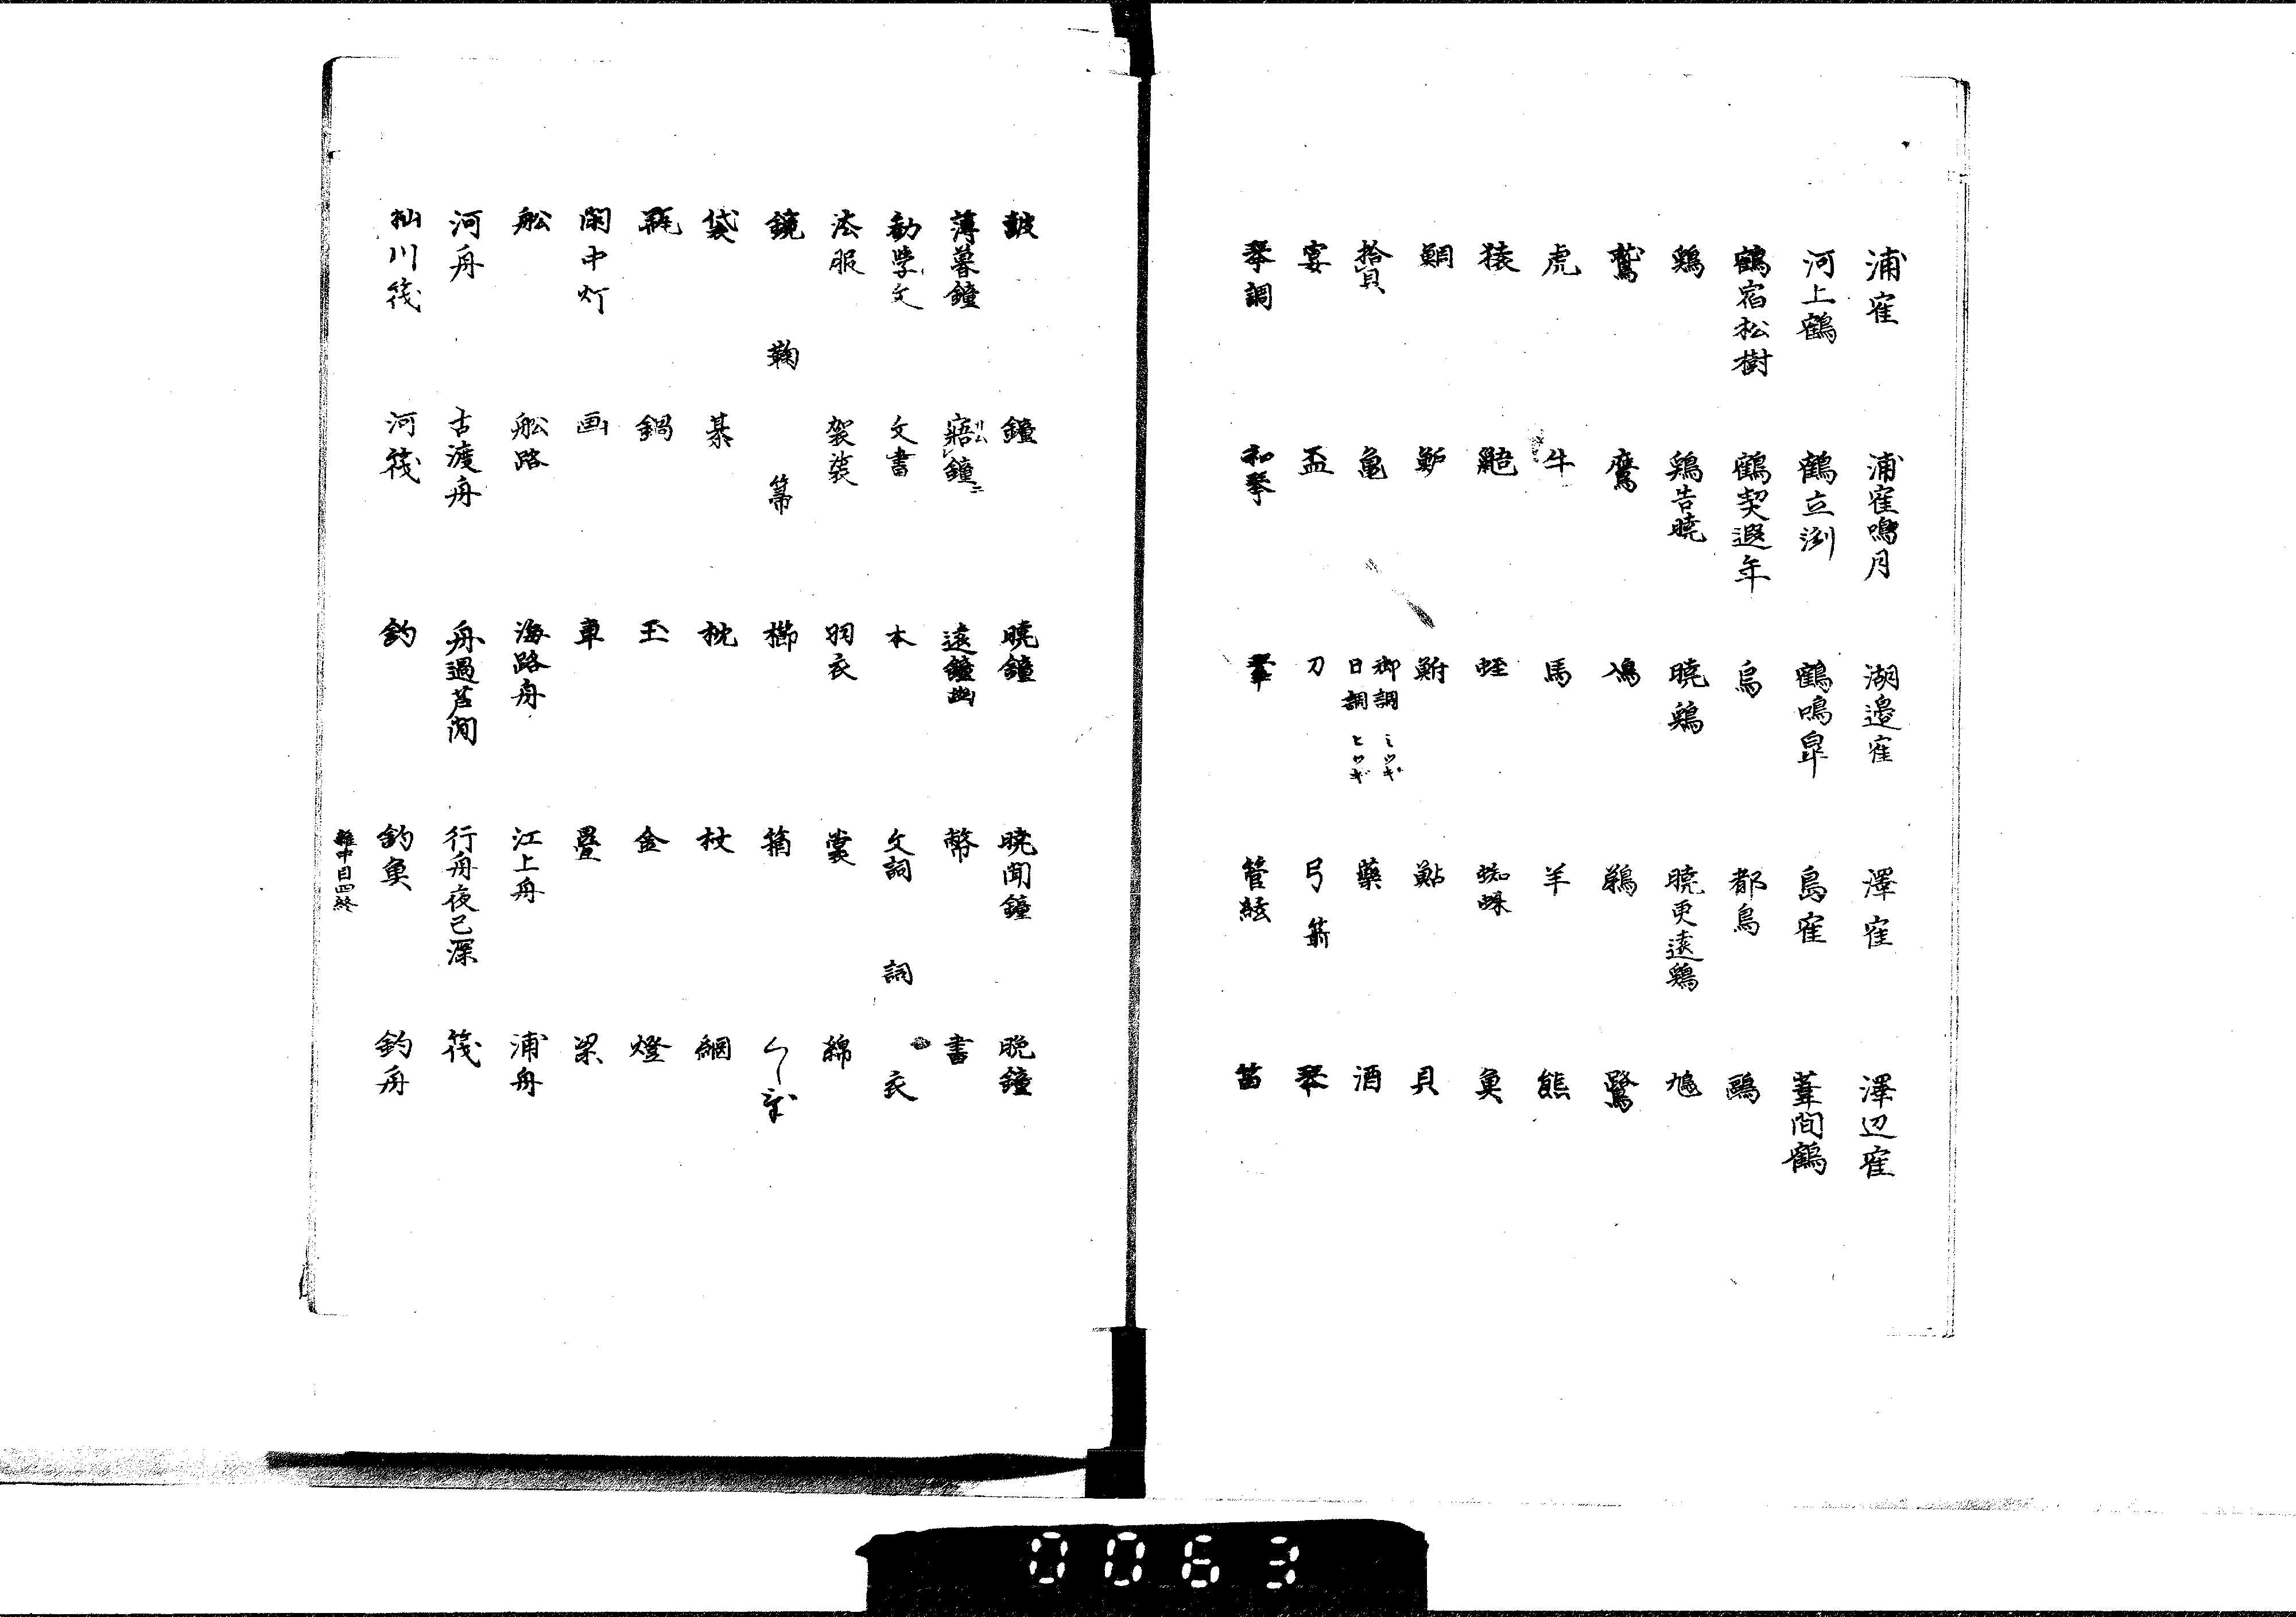 浦寉　浦寉鳴月　湖邉寉　澤寉　澤辺寉
河上鶴　鶴立洲　鶴鳴皐　島寉　葦間鶴
鶴宿松樹　鶴契遐年　烏　都鳥　鷗
鶏　鶏告暁　暁鶏　暁更遠鶏　鳩
鷲　鷹　鳰　鵜　鷺
虎　牛　馬　羊　熊
猿　蛭　蜘蛛　魚
鯛　鮒　鮎　貝
拾貝　亀　御調ミツギ　日調ヒツギ　藥　酒
宴　盃　刀　弓　箭　琴
琴調　和琴　筝　管絃　笛
鼓　鐘　暁鐘　暁聞鐘　晩鐘
薄暮鐘　寤鐘　遠鐘幽　幣　書
勧学文　文書　本　文詞　詞　衣
法服　袈裟　羽衣　裳　綿
鏡　鞠　櫛
袋　棊　枕　杖　網
瓶　鍋　玉　金　燈
閑中灯　画　車　畳　梁
舩　舩路　海路舟　江上舟　浦舟
河舟　古渡舟　舟過芦間　行舟夜已深　筏
杣川筏　河筏　釣　釣魚　釣舟
雜中目四終
0063